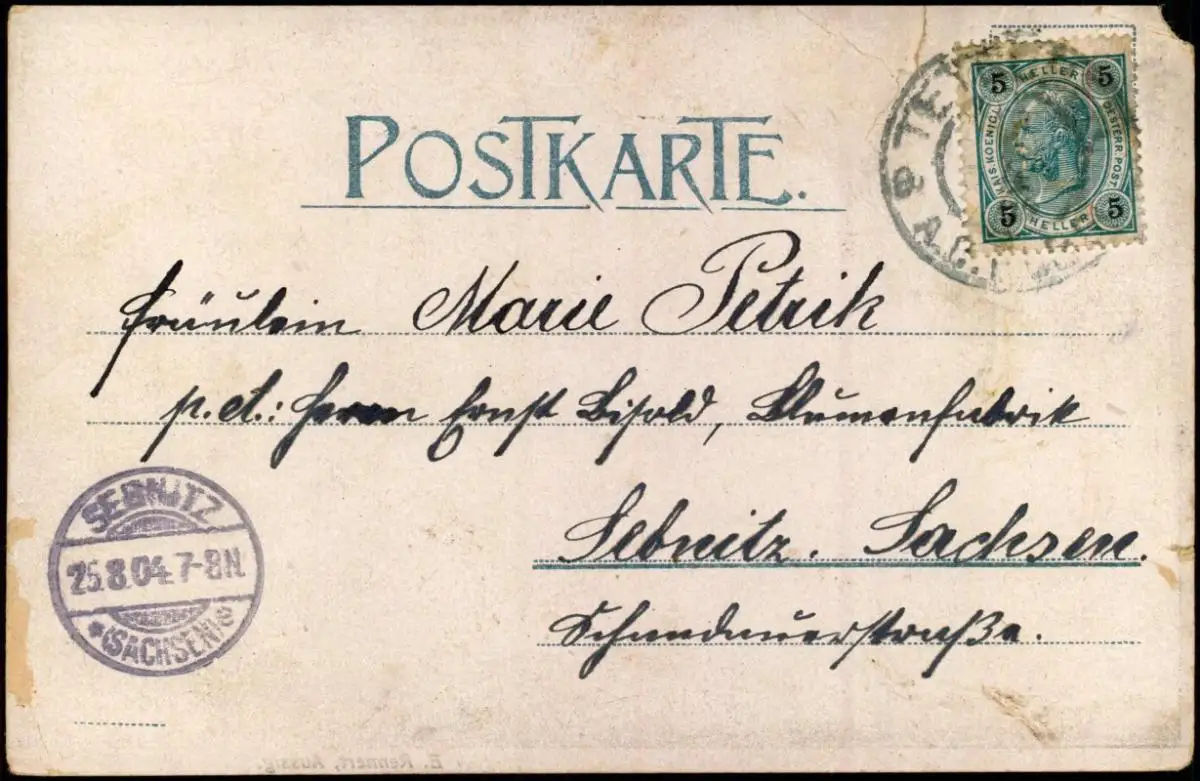 POSTKARTE.
5 HELLER 5
KAIS. KOENIGL. OESTERR. POST
5 HELLER 5
Fräulein Marie Petrik
Herrn Ernst Bisold, Blumenfabrik
Sebnitz. Sachsen.
Schandauerstraße.
SEBNITZ
25.8.04. 7-8N.
* (SACHSEN) c
E. Rennert, Aussig.